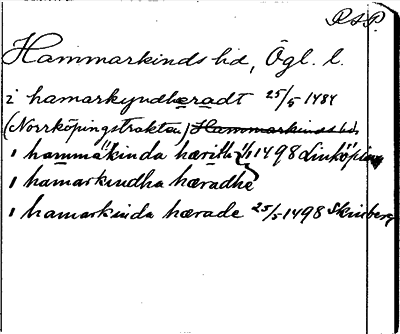 RAP.
Hammarkinds hd, Ögl. l.
i hamarkyndheradt 25/5 1484
(Norrköpingstrakten) Hammarkinds hd,
i hammakinda hærith 1/1 1498 Linköping
i hamarkindha hæradhe
i hamarkinda hærade 25/5 1498 Skinberg